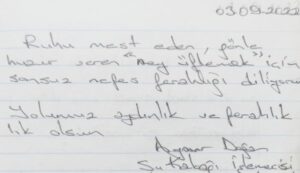 03.09.2022
Ruhu mest eden, gönle
huzur veren "ney üflemek" için
sonsuz nefes ferahlığı diliyorum
Yolunuz aydınlık ve ferahlık
lık olsun
Doğan